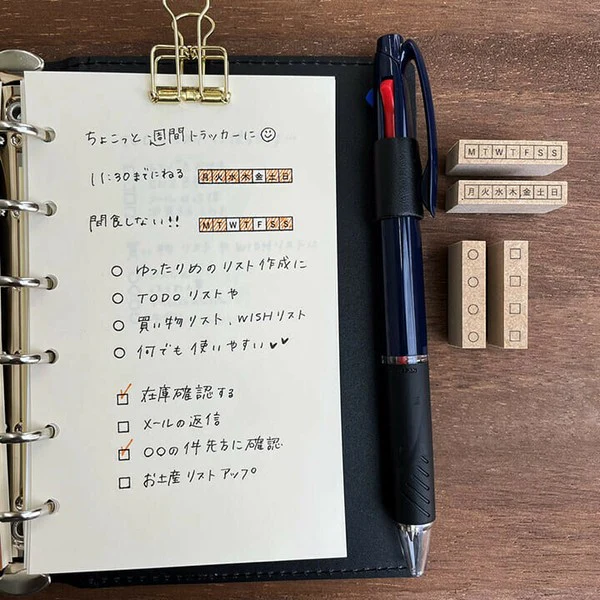 ちょこっと週間トラッカーに☺
11:30までにねる 月火水木金土日
間食しない!! MTWTFSS
○ ゆったりめのリスト作成に
○ TODOリストや
○ 買い物リスト、WISHリスト
○ 何でも使いやすい♥♥
☑ 在庫確認する
☐ メールの返信
☑ ○○の件先方に確認
☐ お土産リストアップ
MTWTFSS
月火水木金土日